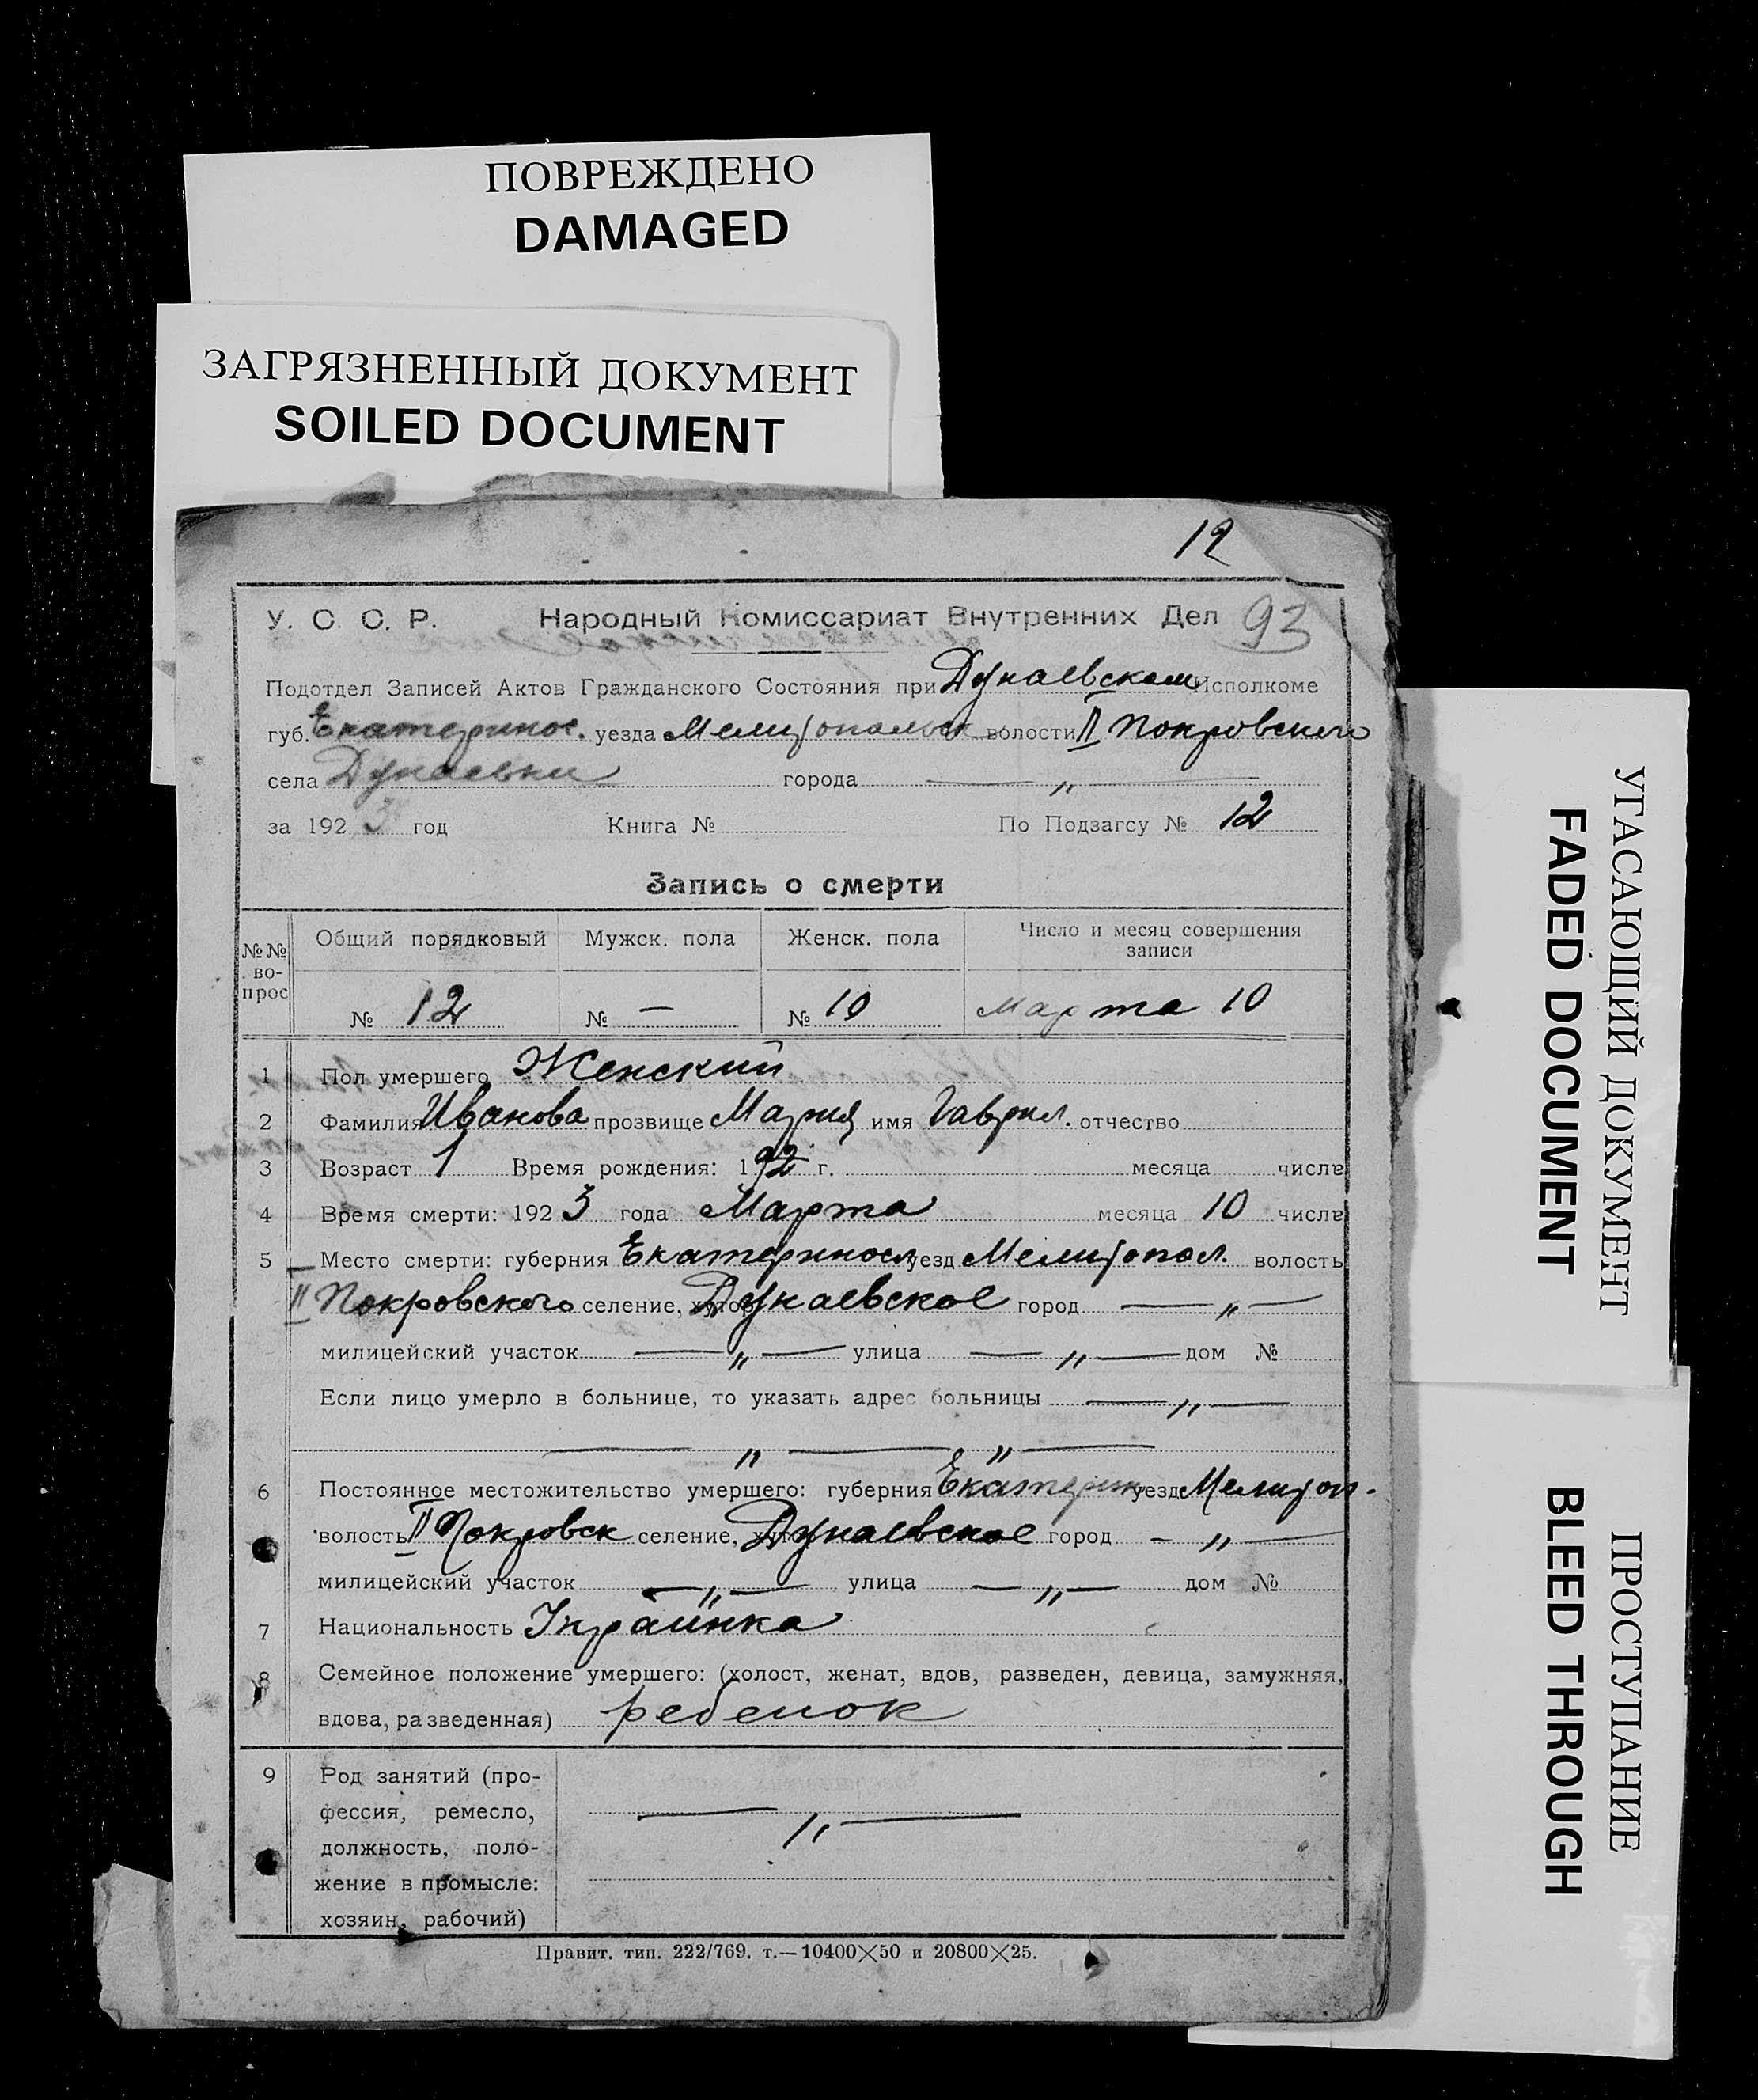 ПОВРЕЖДЕНО
DAMAGED
ЗАГРЯЗНЕННЫЙ ДОКУМЕНТ
SOILED DOCUMENT
12
У. С. С. Р. Народный Комиссариат Внутренних Дел 93
Подотдел Записей Актов Гражданского Состояния при Дунаевском Исполкоме
губ. Екатеринос. уезда Мелитопольск волости II Покровского
села Дунаевки города — „ —
за 1923 год Книга № По Подзагсу № 12
Запись о смерти
№№ во-прос Общий порядковый Мужск. пола Женск. пола Число и месяц совершения записи
№ 12 № — № 10 Марта 10
1 Пол умершего Женский
2 Фамилия Иванова прозвище Мария имя Гаврил. отчество
3 Возраст 1 Время рождения: 192 г. месяца числа
4 Время смерти: 1923 года Марта месяца 10 числа
5 Место смерти: губерния Екатеринос уезд Мелитопол. волость
II Покровского селение, хутор Дунаевское город — „ —
милицейский участок — „ — улица — „ — дом №
Если лицо умерло в больнице, то указать адрес больницы — „ —
— „ — „ —
6 Постоянное местожительство умершего: губерния Екатерин уезд Мелитоп.
волость II Покровск селение, хутор Дунаевское город — „ —
милицейский участок — „ — улица — „ — дом №
7 Национальность Украинка
8 Семейное положение умершего: (холост, женат, вдов, разведен, девица, замужняя,
вдова, разведенная) ребенок
9 Род занятий (про-
фессия, ремесло, — „ —
должность, поло-
жение в промысле:
хозяин, рабочий)
Правит. тип. 222/769. т.—10400×50 и 20800×25.
УГАСАЮЩИЙ ДОКУМЕНТ
FADED DOCUMENT
ПРОСТУПАНИЕ
BLEED THROUGH